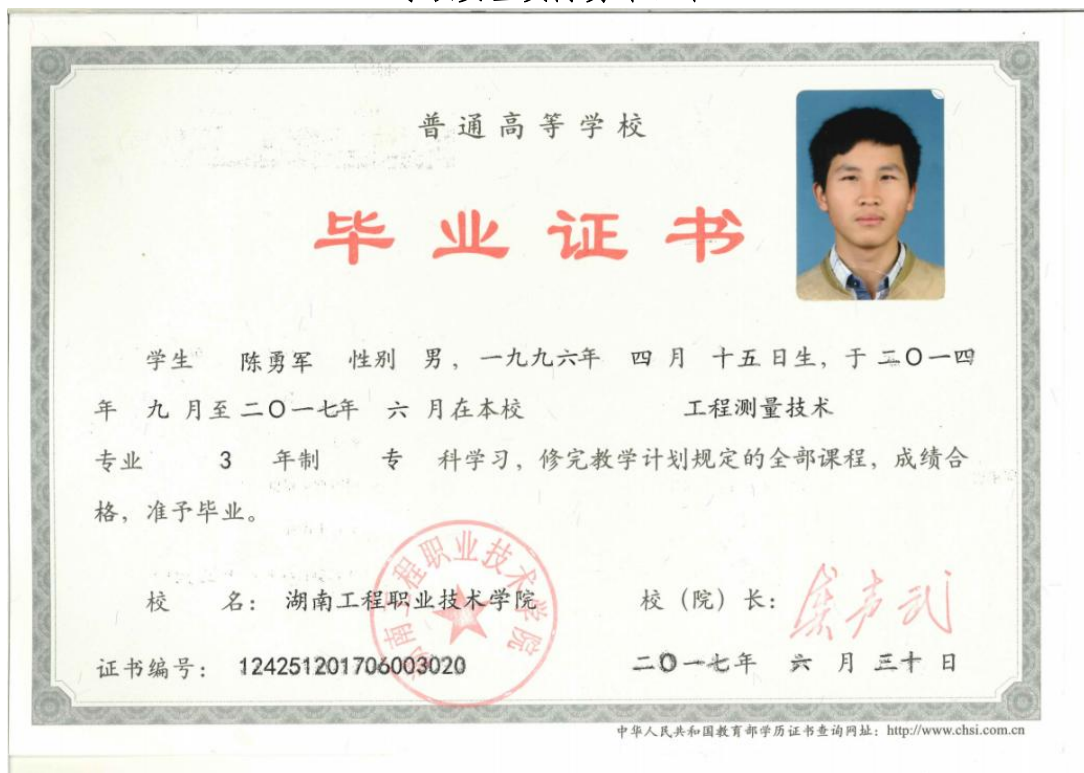 普通高等学校
毕业证书
学生 陈勇军 性别 男，一九九六年 四 月 十五 日生，于 二〇一四
年 九 月至 二〇一七年 六 月在本校 工程测量技术
专业 3 年制 专 科学习，修完教学计划规定的全部课程，成绩合
格，准予毕业。
湖南工程职业技术学院
校 名： 湖南工程职业技术学院 校（院）长：
证书编号： 124251201706003020 二〇一七年 六 月 三十 日
中华人民共和国教育部学历证书查询网址：http://www.chsi.com.cn